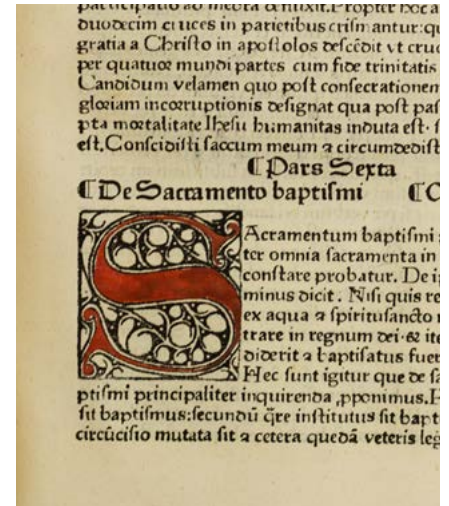 duodecim cruces in parietibus crismantur:q
gratia a Chriſto in apoſtolos deſcēdit vt cruc
per quatuor mundi partes cum fide trinitatis
Candidum velamen quo poſt conſecrationem
gloriam incorruptionis deſignat qua poſt paſ
pta mortalitate Iheſu humanitas induta eſt· ſ
eſt.Conſcidiſti ſaccum meum ꝛ circumdediſt
¶Pars Sexta
¶De Sacramento baptiſmi ¶C
SAcramentum baptiſmi
ter omnia ſacramenta in
conſtare probatur. De i
minus dicit. Niſi quis re
ex aqua ꝛ ſpirituſancto
trare in regnum dei·& ite
diderit ꝛ baptiſatus fuer
Hec ſunt igitur que de ſa
ptiſmi principaliter inquirenda ,pponimus.
ſit baptiſmus:ſecundū q̄re inſtitutus ſit bapt
circūciſio mutata ſit ꝛ cetera quedā veteris leg